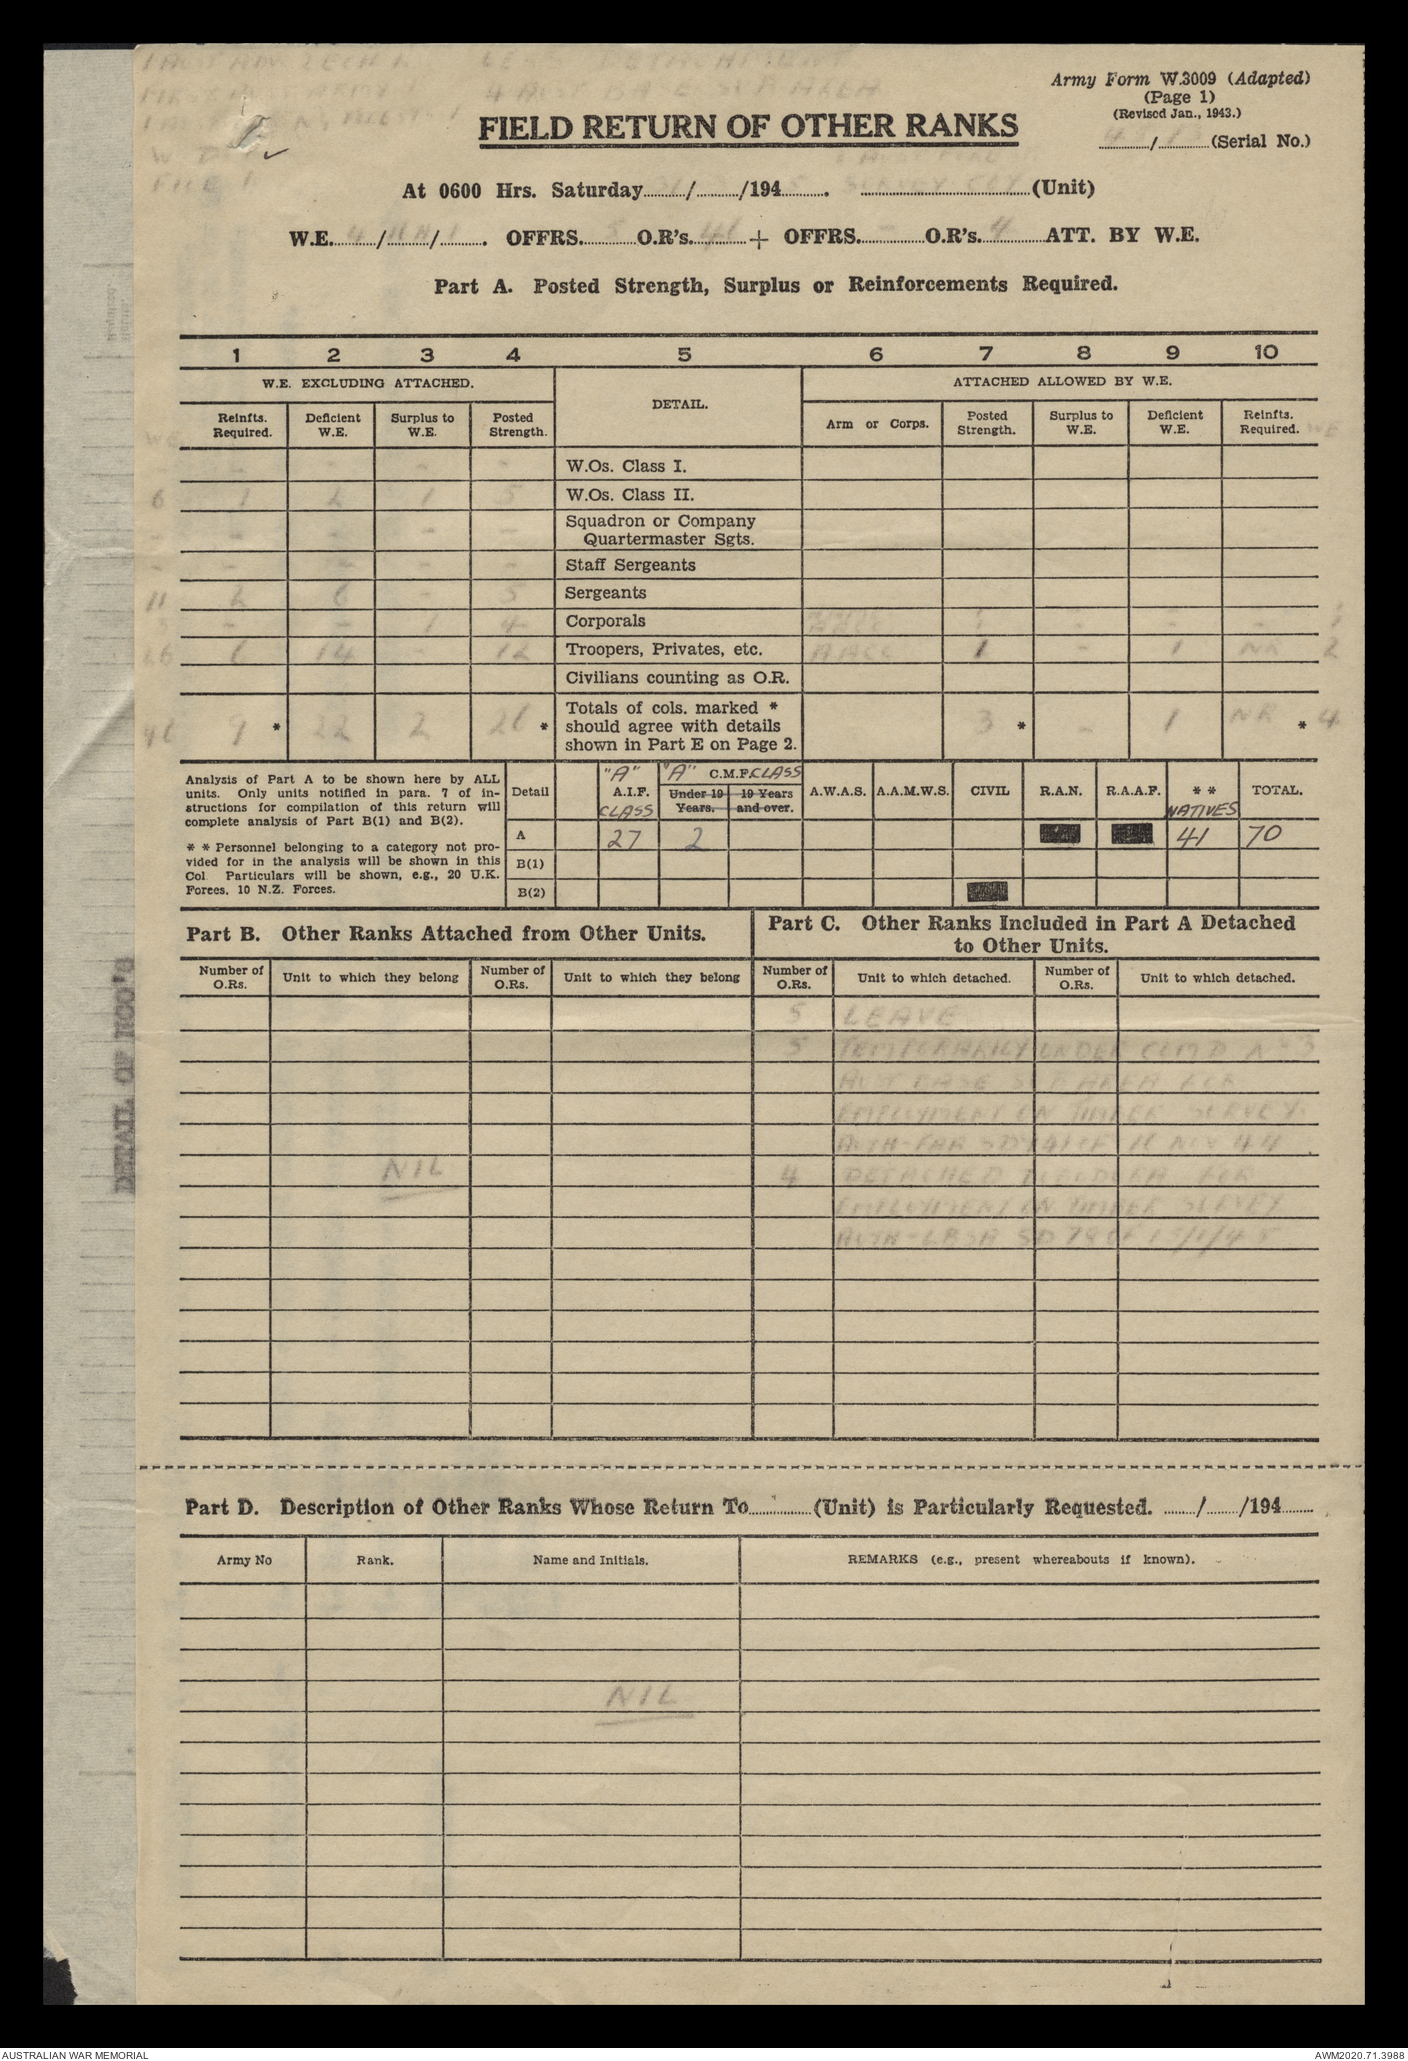 LESS DETACHMENT
4 AUST BASE SUB AREA
Army Form W.3009 (Adapted)
(Page 1)
(Revised Jan., 1943.)
FIELD RETURN OF OTHER RANKS
/ (Serial No.)
At 0600 Hrs. Saturday / /194 . SURVEY COY (Unit)
W.E. 4/ / . OFFRS. 5 O.R's. + OFFRS. - O.R's. 4 ATT. BY W.E.
Part A. Posted Strength, Surplus or Reinforcements Required.
1 2 3 4 5 6 7 8 9 10
W.E. EXCLUDING ATTACHED. DETAIL. ATTACHED ALLOWED BY W.E.
Reinfts. Required. Deficient W.E. Surplus to W.E. Posted Strength. Arm or Corps. Posted Strength. Surplus to W.E. Deficient W.E. Reinfts. Required. WE
- - - - W.Os. Class I.
6 1 2 1 5 W.Os. Class II.
- - - - Squadron or Company
Quartermaster Sgts.
- - - - - Staff Sergeants
11 2 6 - 5 Sergeants
- - 1 4 Corporals
26 6 14 - 12 Troopers, Privates, etc. AACC 1 - 1 NR 2
Civilians counting as O.R.
9 * 22 2 26 * Totals of cols. marked * should agree with details shown in Part E on Page 2. 3 * - 1 NR * 4
Analysis of Part A to be shown here by ALL
units. Only units notified in para. 7 of in-
structions for compilation of this return will
complete analysis of Part B(1) and B(2).
* * Personnel belonging to a category not pro-
vided for in the analysis will be shown in this
Col Particulars will be shown, e.g., 20 U.K.
Forces, 10 N.Z. Forces.
Detail "A" A.I.F. CLASS "A" C.M.F. CLASS Under 19 Years. 19 Years and over. A.W.A.S. A.A.M.W.S. CIVIL R.A.N. R.A.A.F. * * NATIVES TOTAL.
A 27 2 41 70
B(1)
B(2)
Part B. Other Ranks Attached from Other Units.
Part C. Other Ranks Included in Part A Detached
to Other Units.
Number of O.Rs. Unit to which they belong Number of O.Rs. Unit to which they belong Number of O.Rs. Unit to which detached. Number of O.Rs. Unit to which detached.
5 LEAVE
5 TEMPORARILY UNDER COMD 3
AUST BASE SUB AREA FOR
EMPLOYMENT ON TIMBER SURVEY.
AUTH-FAA SD 141 OF NOV 44.
NIL
4 DETACHED FOR
EMPLOYMENT ON TIMBER SURVEY
AUTH- SD 78 OF
Part D. Description of Other Ranks Whose Return To (Unit) is Particularly Requested. / /194
Army No Rank. Name and Initials. REMARKS (e.g., present whereabouts if known).
NIL
DETAIL OF NCO's
AUSTRALIAN WAR MEMORIAL AWM2020.71.3988